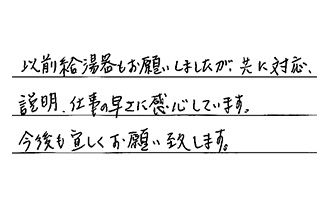 以前給湯器もお願いしましたが、共に対応、
説明、仕事の早さに感心しています。
今後も宜しくお願い致します。